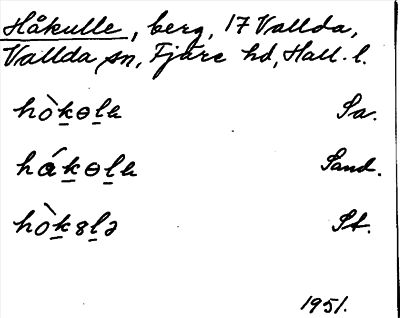 Håkulle, berg, 17 Vallda,
Vallda sn, Fjäre hd, Hall. l.
hò̱kɵḻa Sa.
hɑ́ḵɵḻa Sand.
hòḵ8ḻə St.
1951.